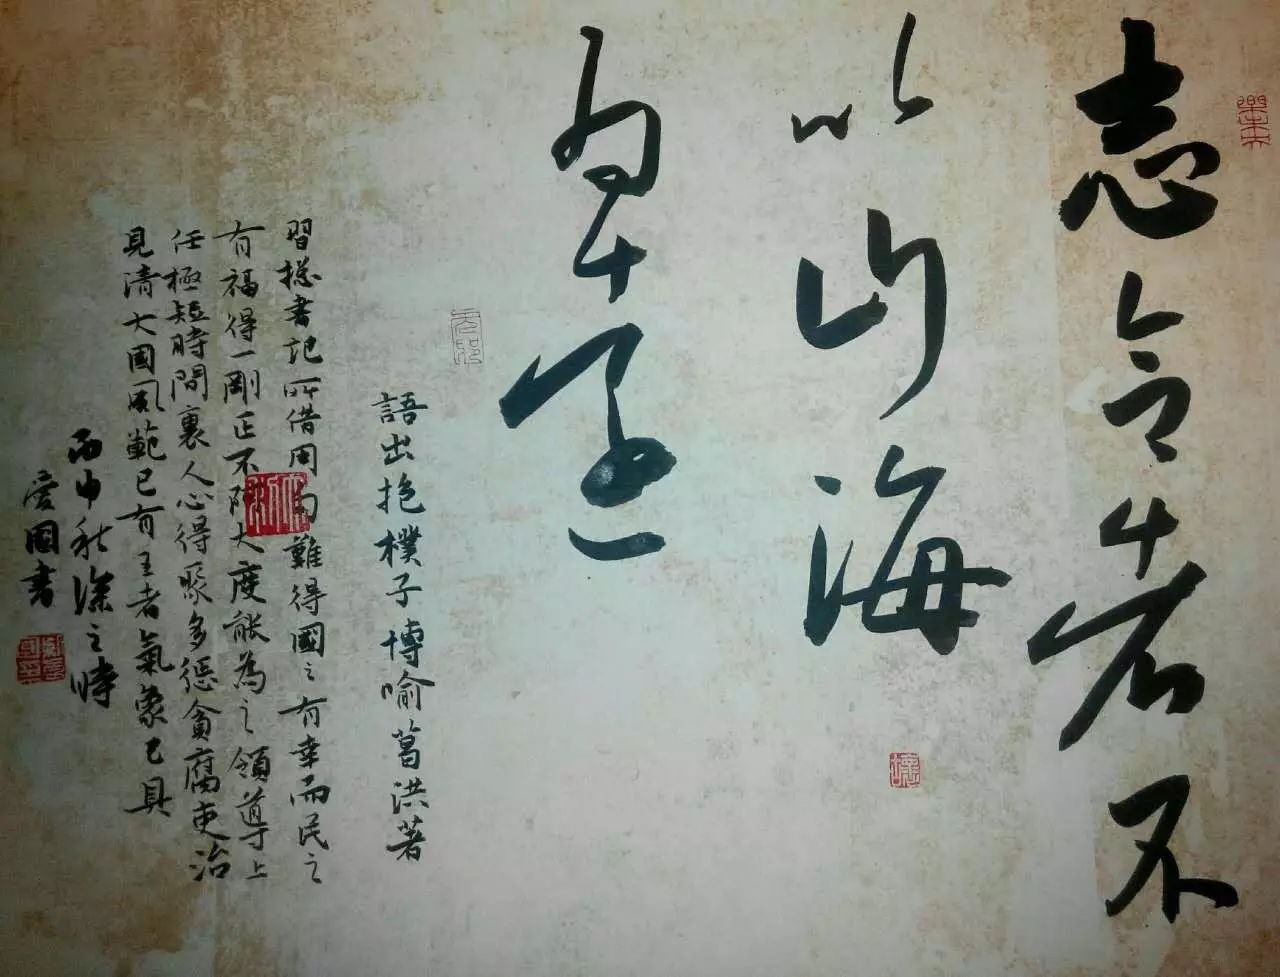 志合者不
以山海
為遠
語出抱樸子博喻葛洪著
習總書記所借用難得國之有幸而民之
有福得一剛正不阿大度能為之領導上
任極短時間裏人心得聚多懲貪腐吏治
見清大國風範已有王者氣象已具
丙申秋深之時
愛國書